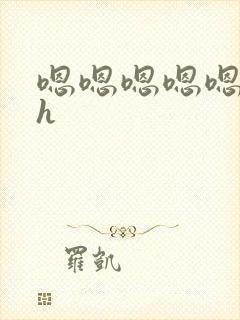 嗯嗯嗯嗯嗯
h
羅凱